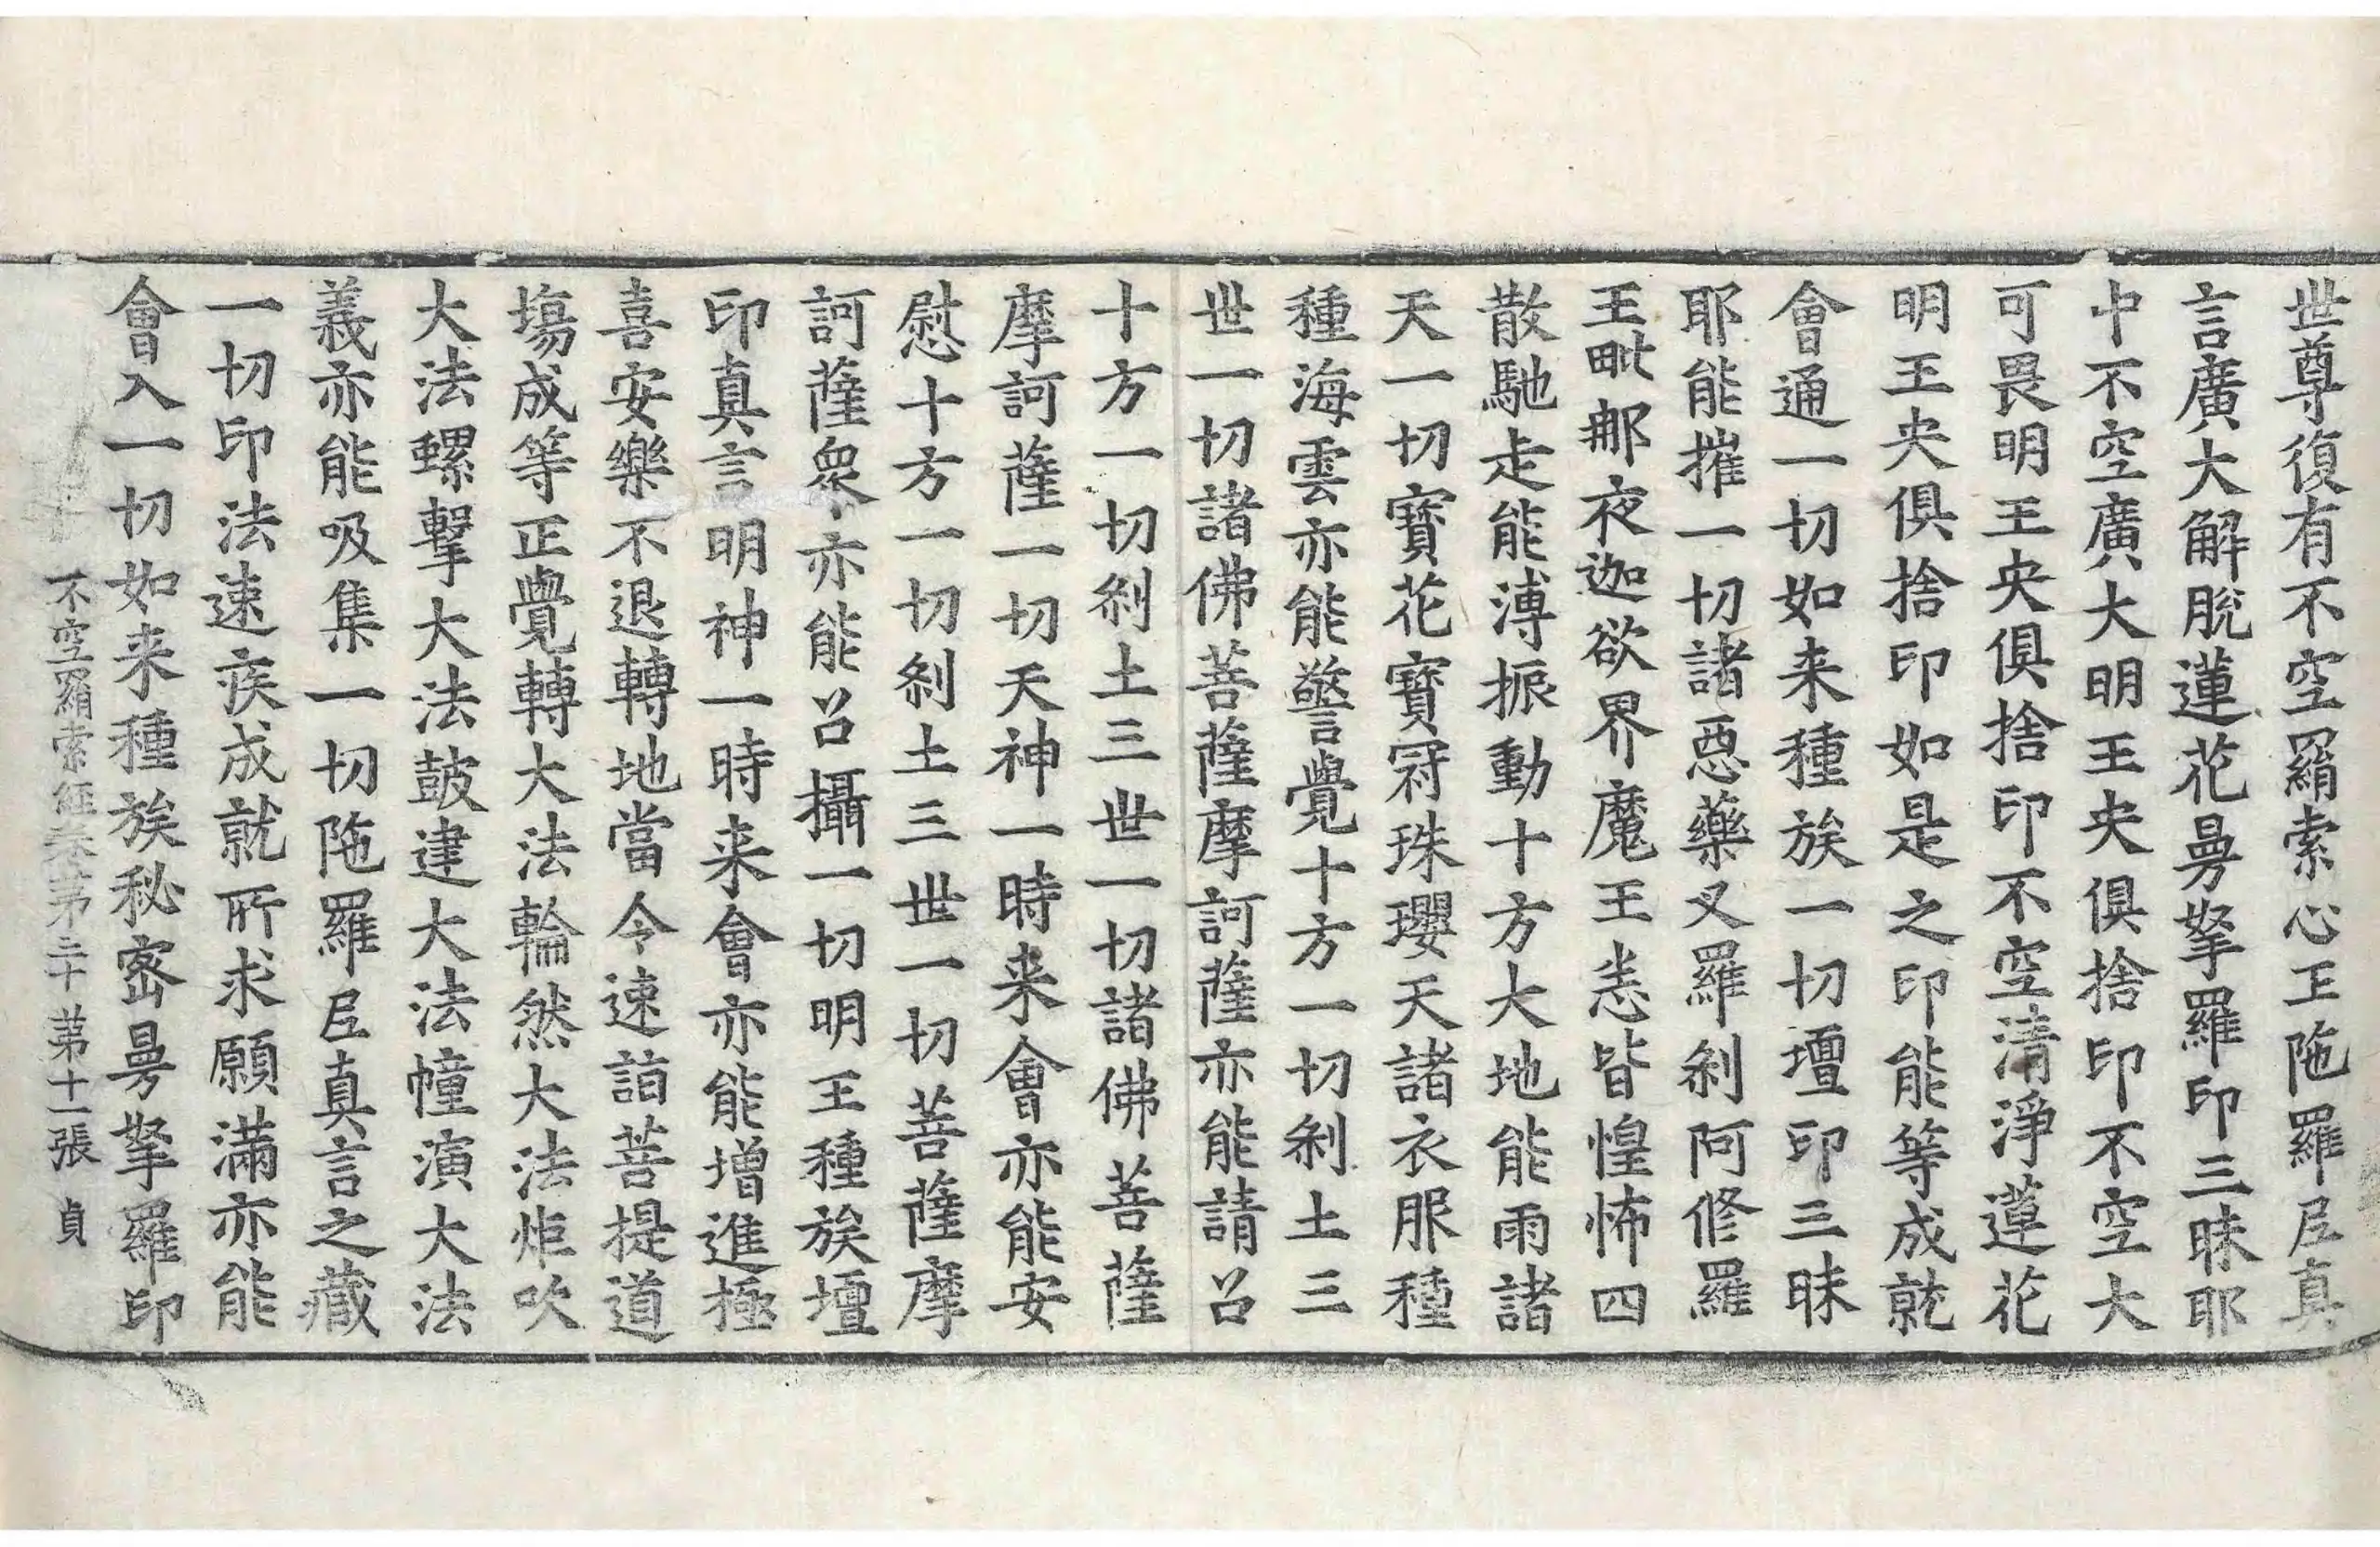 世尊復有不空羂索心王陁羅𡰱真
言廣大解脫蓮花曼拏羅印三昧耶
中不空廣大明王央俱捨印不空大
可畏明王央俱捨印不空清淨蓮花
明王央俱捨印如是之印能等成就
會通一切如来種族一切壇印三昧
耶能摧一切諸惡藥叉羅剎阿修羅
王毗郍夜迦欲界魔王恙皆惶怖四
散馳走能溥振動十方大地能雨諸
天一切寶花寶冠珠瓔天諸衣服種
種海雲亦能警覺十方一切剎土三
世一切諸佛菩薩摩訶薩亦能請召
十方一切剎土三世一切諸佛菩薩
摩訶薩一切天神一時来會亦能安
慰十方一切剎土三世一切菩薩摩
訶薩衆亦能召攝一切明王種族壇
印真言明神一時来會亦能增進極
喜安樂不退轉地當令速詣菩提道
場成等正覺轉大法輪然大法炬吹
大法螺擊大法鼓建大法幢演大法
義亦能吸集一切陁羅𡰱真言之藏
一切印法速疾成就所求願滿亦能
會入一切如来種族秘密曼拏羅印
不空羂索經卷第二十 第十一張 貞